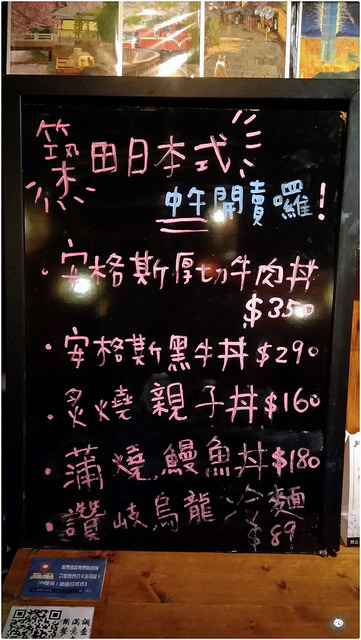 築田日本式
中午開賣囉！
·安格斯厚切牛肉丼
$350
·安格斯黑牛丼$290
·炙燒親子丼$160
·蒲燒鰻魚丼$180
·讚岐烏龍冷麵
$89
用餐滿意調查